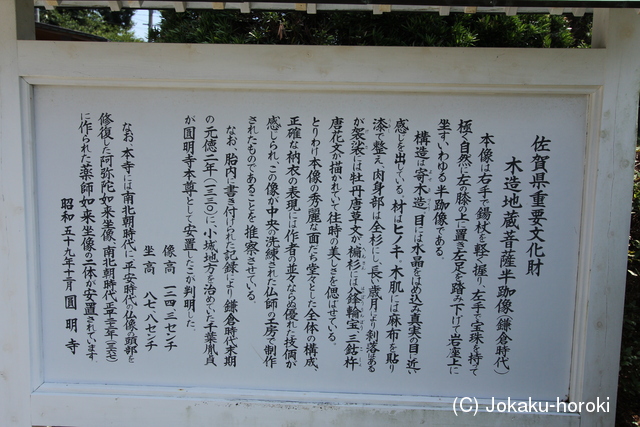 佐賀県重要文化財
木造地蔵菩薩半跏像(鎌倉時代)
本像は右手で錫杖を軽く握り、左手で宝珠を持って
極く自然に左の膝の上に置き左足を踏み下げて岩座上に
坐す、いわゆる半跏像である。
構造は寄木造、目には水晶をはめ込み真実の目に近い
感じを出している。材はヒノキ、木肌には麻布を貼り
漆で整え、肉身部は全彩とし、長い歳月により剥落はある
が袈裟には牡丹唐草文が、襕衫には八鋒輪宝、三鈷杵
唐花文が描かれていて往時の美しさを偲ばせている。
とりわけ本像の秀麗な面だち、堂々とした全体の構成、
正確な衲衣の表現には作者の並々ならぬ優れた技倆が
感じられ、この像が中央の洗練された仏師の工房で制作
されたものであることを推察させている。
なお、胎内に書き付けられた記録により、鎌倉時代末期
の元徳二年(一三三〇)に、小城地方を治めていた千葉胤貞
が圓明寺本尊として安置したことが判明した。
像高 一四三センチ
坐高 八七・八センチ
なお、本寺には南北朝時代に平安時代の仏像の頭部を
修復した阿弥陀如来坐像、南北朝時代、正平二十二年(一三六七)
に作られた薬師如来坐像の二体が安置されています
昭和五十九年十月 圓明寺
(C) Jokaku-horoki